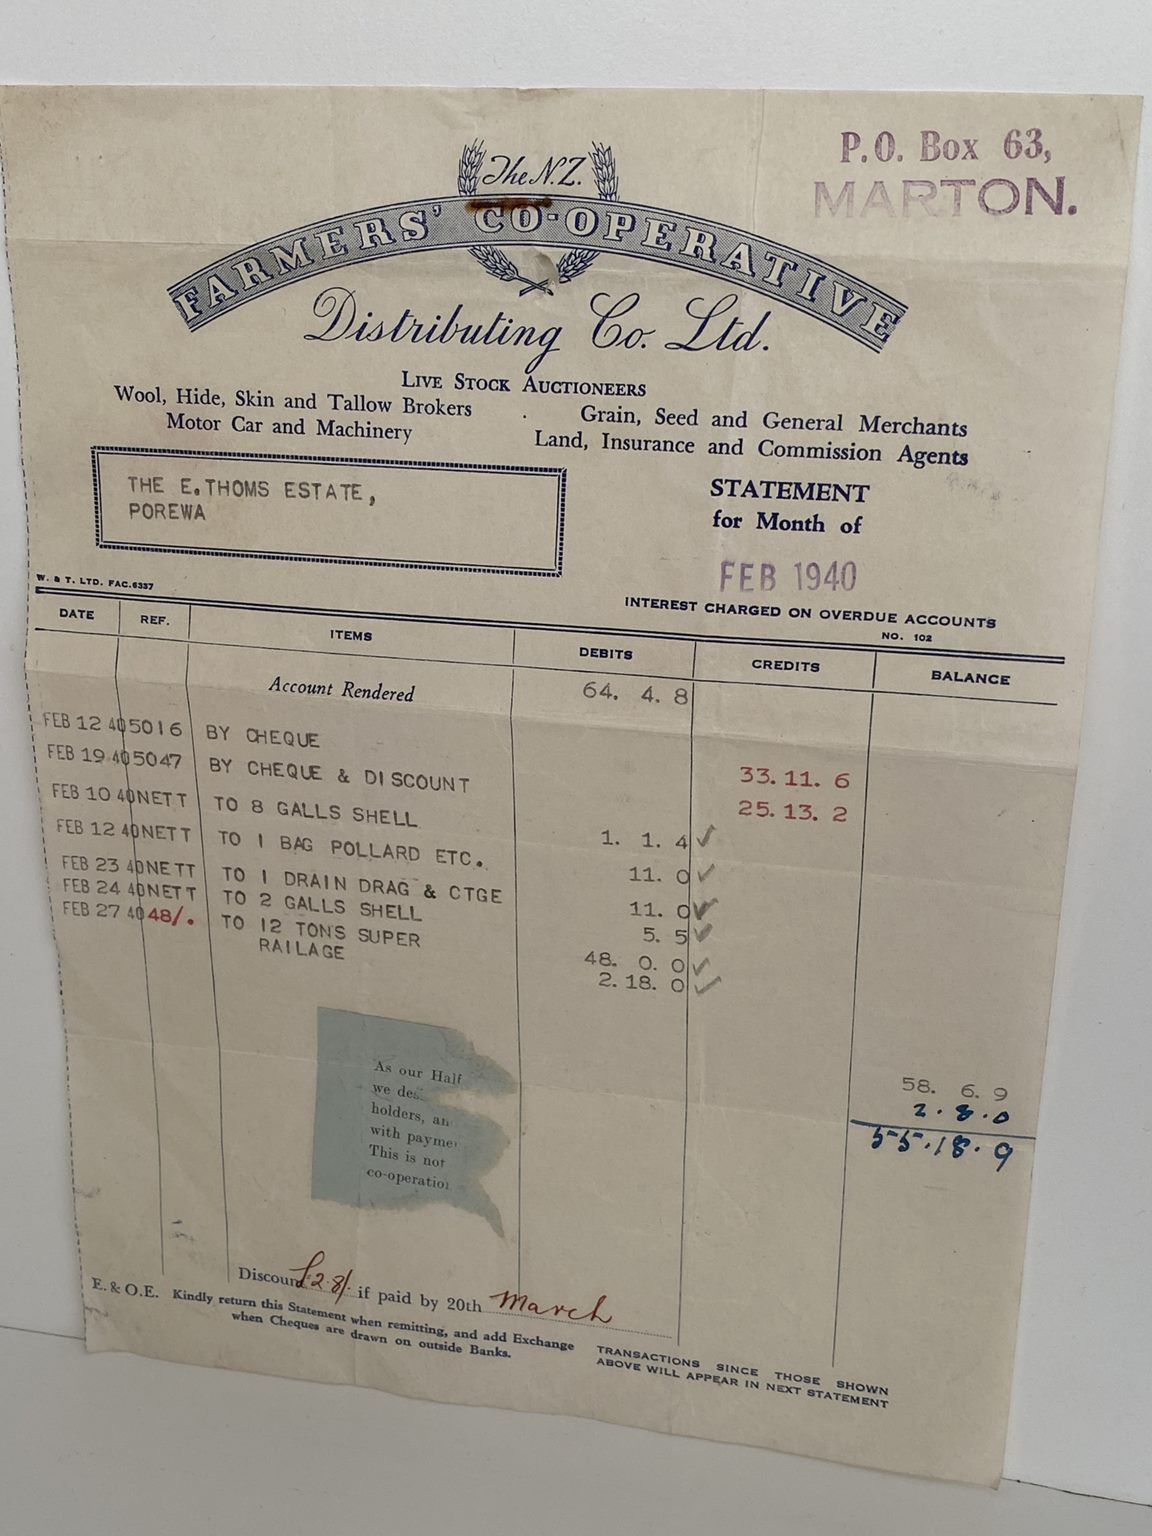 P.O. Box 63,
MARTON.
The N.Z.
FARMERS' CO-OPERATIVE
Distributing Co. Ltd.
LIVE STOCK AUCTIONEERS
Wool, Hide, Skin and Tallow Brokers . Grain, Seed and General Merchants
Motor Car and Machinery Land, Insurance and Commission Agents
THE E.THOMS ESTATE,
POREWA
STATEMENT
for Month of
FEB 1940
W. & T. LTD. FAC.6337
INTEREST CHARGED ON OVERDUE ACCOUNTS
NO. 102
DATE REF. ITEMS DEBITS CREDITS BALANCE
Account Rendered 64. 4. 8
FEB 12 40 5016 BY CHEQUE 33. 11. 6
FEB 19 40 5047 BY CHEQUE & DISCOUNT 25. 13. 2
FEB 10 40 NETT TO 8 GALLS SHELL 1. 1. 4 ✓
FEB 12 40 NETT TO 1 BAG POLLARD ETC. 11. 0 ✓
FEB 23 40 NETT TO 1 DRAIN DRAG & CTGE 11. 0 ✓
FEB 24 40 NETT TO 2 GALLS SHELL 5. 5 ✓
FEB 27 40 48/. TO 12 TONS SUPER 48. 0. 0 ✓
RAILAGE 2. 18. 0 ✓
58. 6. 9
2. 8. 0
55. 18. 9
As our Half
we des
holders, an
with payme
This is not
co-operatio
Discount £2.8/- if paid by 20th March
E. & O.E. Kindly return this Statement when remitting, and add Exchange
when Cheques are drawn on outside Banks.
TRANSACTIONS SINCE THOSE SHOWN
ABOVE WILL APPEAR IN NEXT STATEMENT